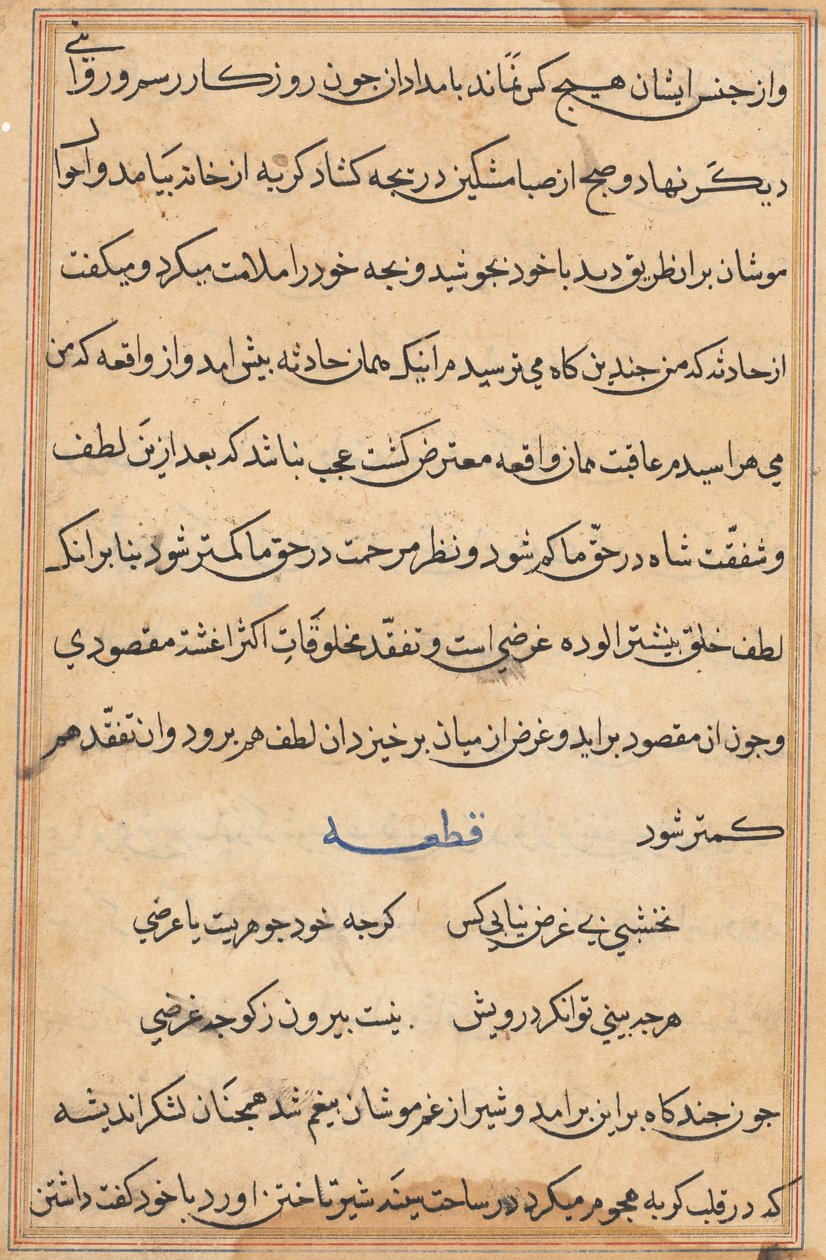 و از جنس ایشان هیچ کس نماند بامدادان جون روزکار رسم ورقا بنی
دیکر نهاد و صبح از صبا مشکین دریجه کشاد کربه از خانه بیامد و احوال
موشان بران طریق دید با خود بجوشید و بجه خود را ملامت میکرد و میکفت
از حادثه که من جندین کاه می ترسیدم اینک همان حادثه بیش امد و از واقعه که من
می هراسیدم عاقبت همان واقعه معترض کشت عجب نباشد که بعد ازین لطف
و شفقّت شاه در حقّ ما کم شود و نظر مرحمت در حق ما کمتر شود بنا برانک
لطف خلق بیشتر الوده غرضی است و تفقّد مخلوقات اکثر اغشته مقصودی
و جون ان مقصود براید و غرض از میان برخیزد ان لطف هم برود و ان تفقّد هم
کمتر شود قطعه
نخشبی بی غرض نیابی کس کرجه خود جوهریت یا عرضی
هرجه بینی توانکر درویش نیست بیرون ز کوجه غرضی
جون جند کاه براین برامد و شیر از غم موشان بیغم شد همجنان لشکر اندیشه
که در قلب کربه هجوم میکرد در ساحت سینه شیر تاختن اورد با خود کفت داشتن